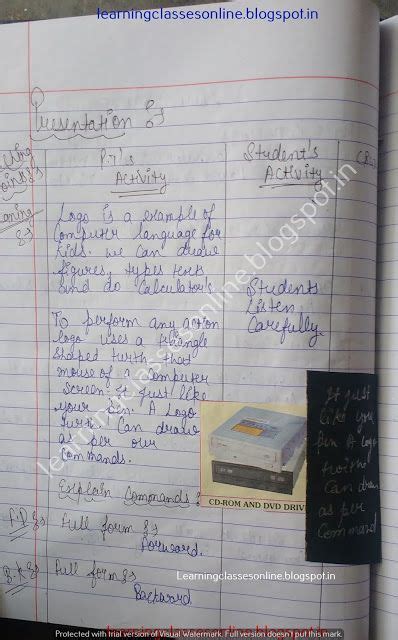 learningclassesonline.blogspot.in
Presentation :-
P.T's Activity
Student's Activity
Logo is a example of
Computer language for
kids. we can draw
figures, types text
and do calculator's
Students
Listen
Carefully.
To perform any action
logo uses a triangle
shaped turth that
mouse of a computer
screen. It just like
your pen. A Logo
turth Can draw
as per our
Commands.
CD-ROM AND DVD DRIVE
It just
like you
Pen A logo
Can draw
as per
Command
Explain Commands :-
F.D :- Full form :-
Forward.
B.K :- Full form :-
Backward
learningclassesonline.blogspot.in
Learningclassesonline.blogspot.in
Protected with trial version of Visual Watermark. Full version doesn't put this mark.
learningclassesonline.blogspot.in